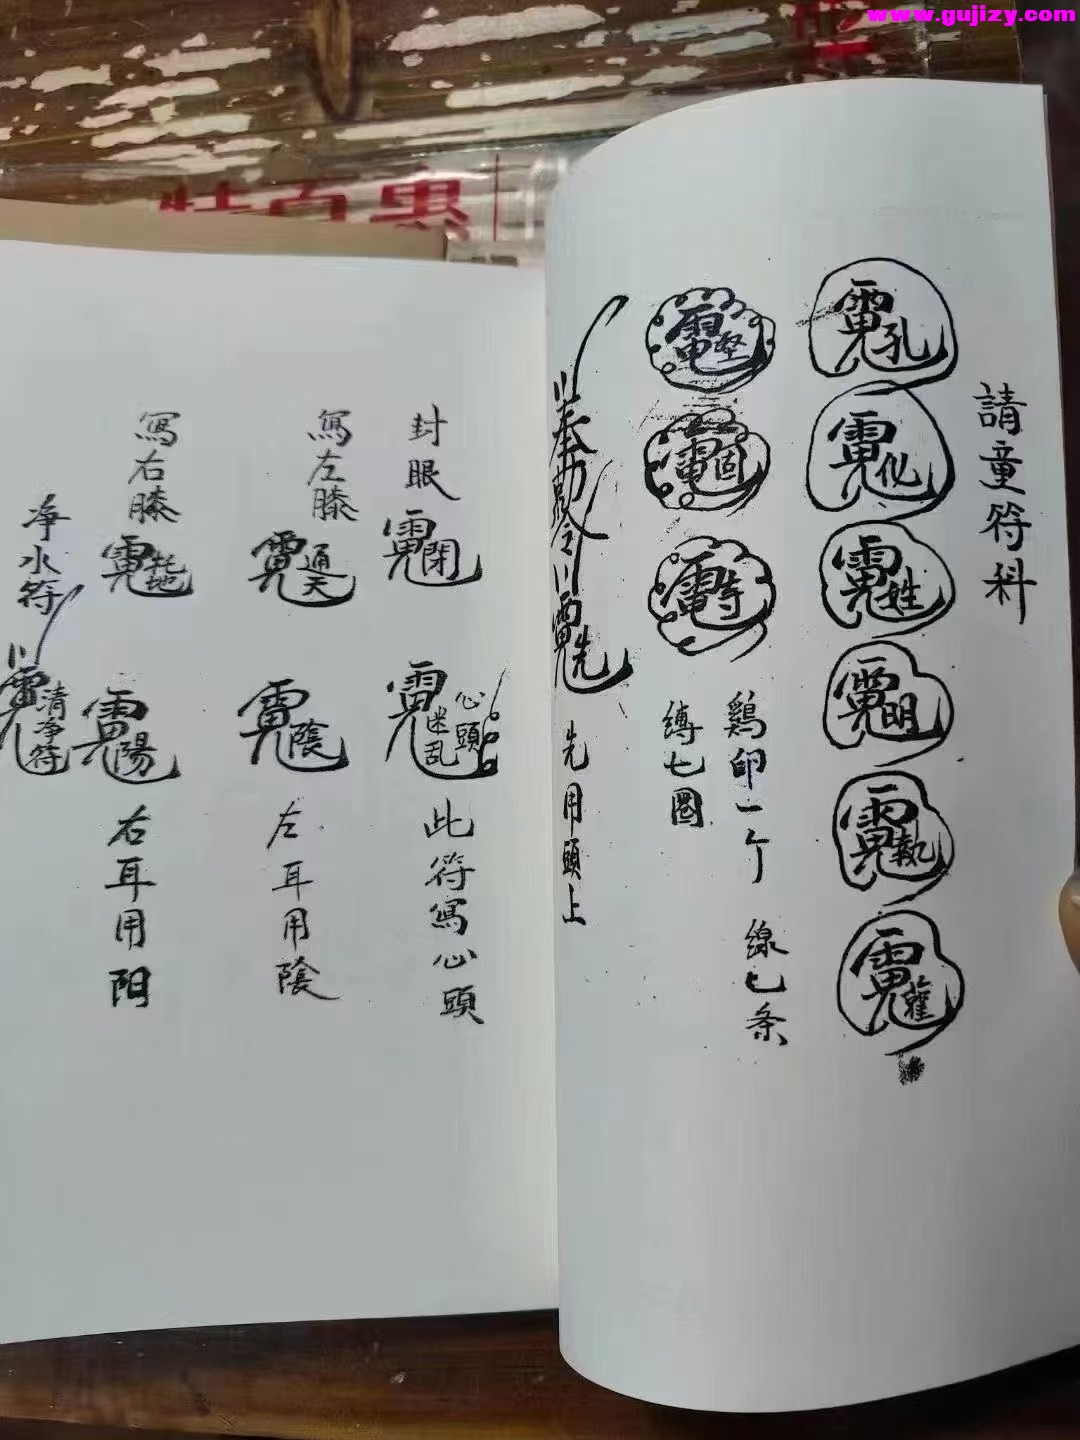 www.gujizy.com
特百惠
請童符科
孔
化
姓
明
執
灌
堅
固
寺
鷄卵一个 線七条
縛七圈
奉勅令
先
先用頭上
封眼
閉
心頭
迷乱
此符寫心頭
寫左膝
通天
陰
左耳用陰
寫右膝
陽
右耳用阳
净水符
清净符